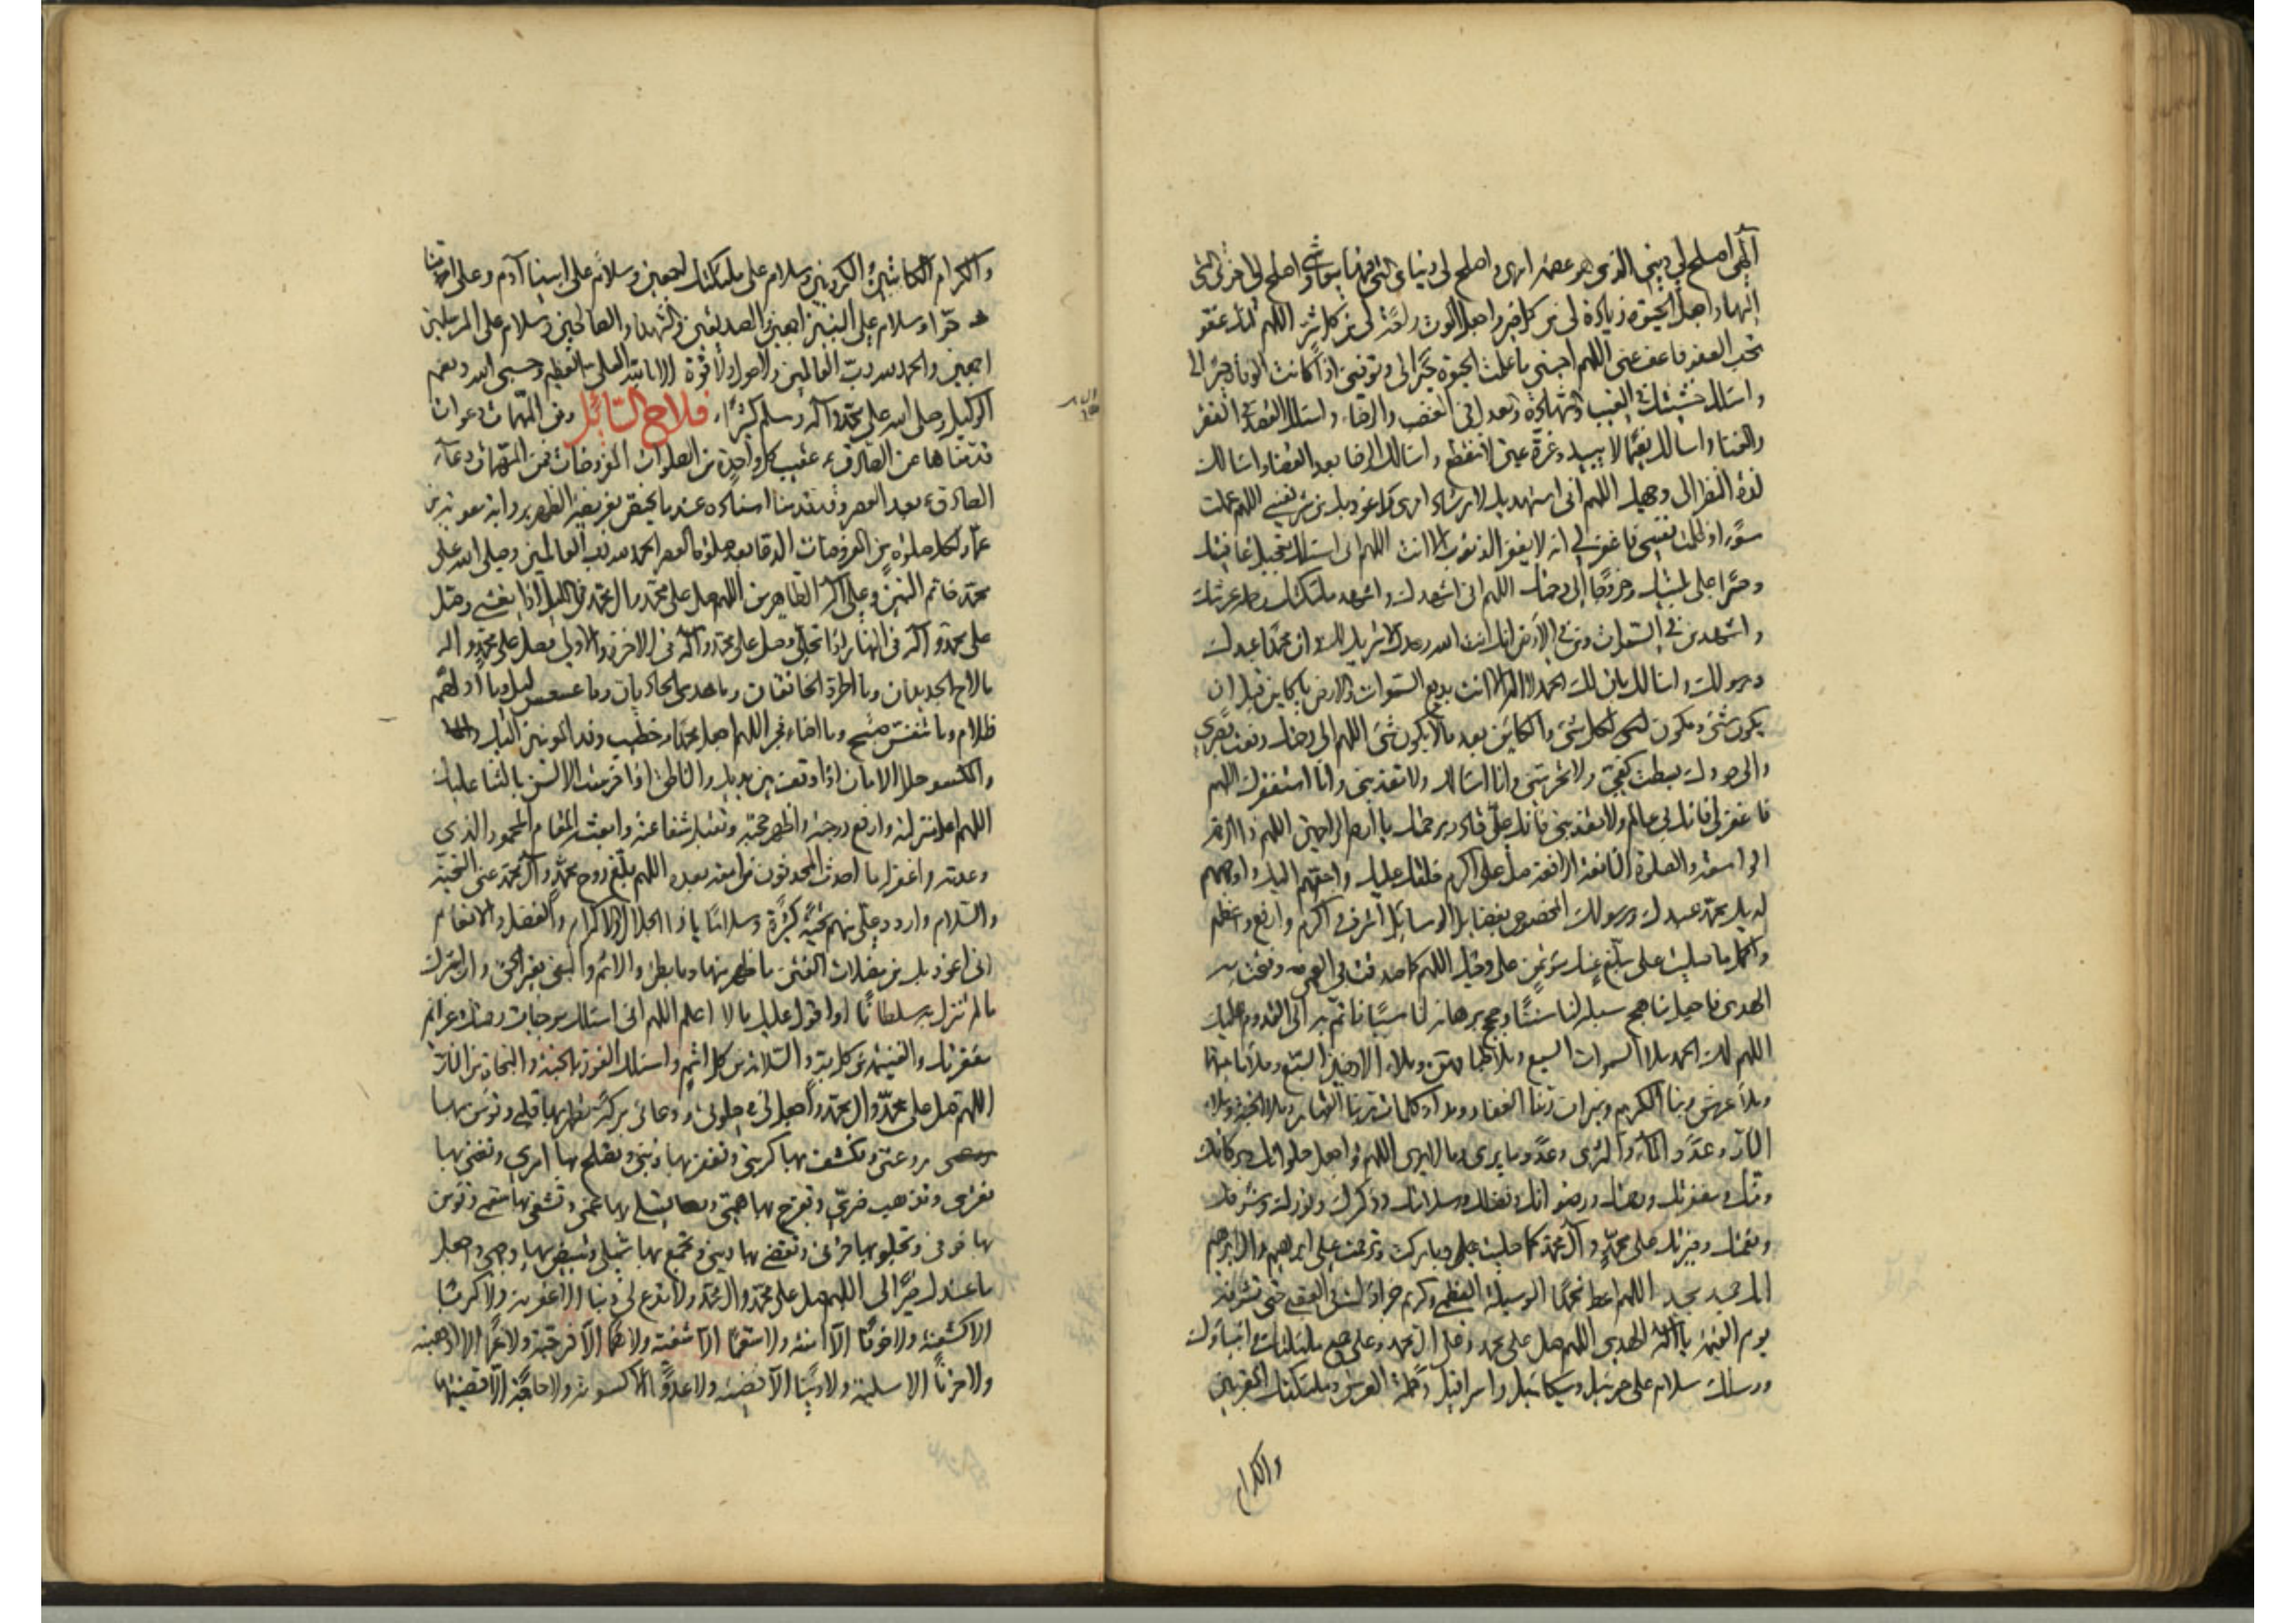 الهي اصلح لي ديني الذي هو عصمة امري واصلح لي دنياي التي فيها معاشي واصلح لي اخرتي التي
اليها واجعل الحيوة زيادة لي من كل خير واجعل الموت راحة لي من كل شر اللهم انك عفو
تحب العفو فاعف عني اللهم احيني ما علمت الحيوة خيرا لي وتوفني اذا كانت الوفاة خيرا لي
واسئلك خشيتك في الغيب والشهادة والعدل في الغضب والرضاء واسئلك القصد في الفقر
والغنا واسالك نعيما لا يبيد وقرة عين لا تنقطع واسالك الرضا بعد القضا واسالك
لذة النظر الى وجهك اللهم اني استهديك لارشاد امري واعوذ بك من شر نفسي اللهم عملت
سوءا وظلمت نفسي فاغفر لي انه لا يغفر الذنوب الا انت اللهم اني اسئلك تعجيل عافيتك
وصبرا على بليتك وخروجا الى رحمتك اللهم اني اشهدك واشهد ملئكتك وحملة عرشك
واشهد من في السموات ومن في الارض انك انت الله وحدك لا شريك لك وان محمدا عبدك
ورسولك واسالك بان لك الحمد لا اله الا انت بديع السموات والارض يا كاين قبل ان
يكون شئ ومكون لكل شئ والكاين بعد ما لا يكون شئ اللهم الى رحمتك رفعت بصري
والى جودك بسطت كفي فلا تحرمني وانا اسالك ولا تعذبني وانا استغفرك اللهم
فاغفر لي فانك بي عالم ولا تعذبني فانك علي قادر برحمتك يا ارحم الراحمين اللهم ذا الرحمة
الواسعة والصلوة النافعة الرافعة صل على اكرم خلقك عليك واحبهم اليك واوجههم
لديك محمد عبدك ورسولك المخصوص بفضايل الوسايل اشرف واكرم وارفع واعظم
واكمل ما صليت على مبلغ عنك مؤتمن على وحيك اللهم كما سددت به العمى وفتحت به
الهدى فاجعل مناهج سبله لنا سننا وحجج برهانه لنا سببا ناتم به الى القدوم عليك
اللهم لك الحمد ملا السموات السبع وملا طباقهن وملاء الارضين السبع وملا ما بينهما
وملا عرش ربنا الكريم وميزان ربنا الغفار ومداد كلمات ربنا القهار وملا الجنة وملا
النار وعدد الماء والثرى وعدد ما يرى وما لا يرى اللهم واجعل صلواتك وبركاتك
ومنك ومغفرتك ورحمتك ورضوانك وفضلك وسلامتك وذكرك ونورك وشرفك
ونعمتك وخيرتك على محمد وآل محمد كما صليت وباركت وترحمت على ابرهيم وال ابرهيم
انك حميد مجيد اللهم اعط محمدا الوسيلة العظمى وكريم جزائك في العقبى حتى تشرفه
يوم القيمة يا اله الهدى اللهم صل على محمد وعلى ال محمد وعلى جميع ملئكتك وانبيائك
ورسلك سلام على جبرئيل وميكائيل واسرافيل وحملة العرش وملئكتك المقربين
والكرام
والكرام الكاتبين والكروبيين وسلام على ملئكتك اجمعين وسلام على ابينا آدم وعلى امنا
حواء وسلام على النبيين اجمعين والصديقين والشهداء والصالحين وسلام على المرسلين
اجمعين والحمد لله رب العالمين ولا حول ولا قوة الا بالله العلي العظيم وحسبي الله ونعم
الوكيل وصلى الله على محمد وآله وسلم كثيرا فلاح السائل ومن المهمات دعوات
قدمناها عن الصادق ع عقيب كل واحدة من الصلوات المفروضات فمن المهمات دعاء
الصادق ع بعد العصر وقد قدمنا اسناده عند ما يختص بفريضة الظهر برواية معوية بن
عمار لكل صلوة من المفروضات الدعا بعد صلوة العصر الحمد لله رب العالمين وصلى الله على
محمد خاتم النبيين وعلى آله الطاهرين اللهم صل على محمد وال محمد في الليل اذا يغشى وصل
على محمد وآله في النهار اذا تجلى وصل على محمد وآله في الاخرة والاولى وصل على محمد واله
ما لاح الجديدان وما اطرد الخافقان وما حدى الحاديان وما عسعس ليل وما ادلهم
ظلام وما تنفس صبح وما اضاء فجر اللهم اجعل محمدا خطيب وفد المؤمنين اليك
والمكسو حلل الامان اذا وقف بين يديك والناطق اذا خرست الالسن بالثنا عليك
اللهم اعل منزلته وارفع درجته واظهر حجته وتقبل شفاعته وابعثه المقام المحمود الذي
وعدته واغفر له ما احدث المحدثون من امته بعده اللهم بلغ روح محمد وآل محمد عني التحية
والسلام واردد علي منهم تحية كثيرة وسلاما يا ذا الجلال والاكرام والفضل والانعام
اني اعوذ بك من مضلات الفتن ما ظهر منها وما بطن والاثم والبغي بغير الحق وان اشرك
ما لم تنزل به سلطانا او اقول عليك ما لا اعلم اللهم اني اسئلك موجبات رحمتك وعزائم
مغفرتك والغنيمة من كل بر والسلامة من كل اثم واسئلك الفوز بالجنة والنجاة من النار
اللهم صل على محمد وال محمد واجعل لي في صلوتي ودعائي بركة تطهر بها قلبي وتؤمن بها
روعتي وتكشف بها كربتي وتغفر بها ذنبي وتصلح بها امري وتغني بها
فقري وتذهب ضري وتفرج بها همي وتسلي بها غمي وتشفي بها سقمي وتؤمن
بها خوفي وتجلو بها حزني وتقضي بها ديني وتجمع بها شملي وتبيض بها وجهي واجعل
ما عندك خيرا لي اللهم صل على محمد وال محمد ولا تدع لي ذنبا الا غفرته ولا كربا
الا كشفته ولا خوفا الا امنته ولا سقما الا شفيته ولا هما الا فرجته ولا غما الا اذهبته
ولا حزنا الا سليته ولا دينا الا قضيته ولا عدوا الا كفيته ولا حاجة الا قضيتها